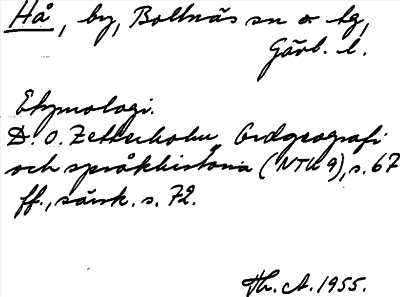 Hå, by, Bollnäs sn o tg,
Gävl. l.
Etymologi.
D. O. Zetterholm, Ordgeografi
och språkhistoria (NTU 9), s. 67
ff., särsk. s. 72.
Hr. A. 1955.